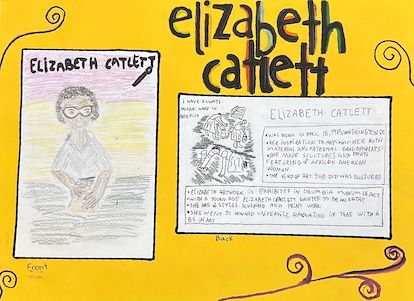 elizabeth
catlett
ELIZABETH CATLETT
Front
I HAVE ALWAYS
WORK HARD IN
AMERICA
ELIZABETH CATLETT
• WAS BORN IN APRIL 15, 1915 WASHINGTON DC
• HER INSPIRATION TO ART
BOTH
MATERNAL AND PATERNAL GRANDPARENTS
• SHE MADE SCULTURES AND PRINTS
FEATURING OF AFRICAN AMERICAN
WOMEN
• THE KIND OF ART SHE DID WAS SCULTURES
• ELIZABETH ARTWORK IS EXHIBITED IN COLUMBIA MUSEUM OF ART
WHEN A YOUNG AGE ELIZABETH CATLETT WANTED TO BE AN ARTIST
• SHE HAS 2 STYLES
AND PRINT WORK
• SHE WENT TO HOWARD
GRADUATING IN
WITH A
BS IN ART
Back